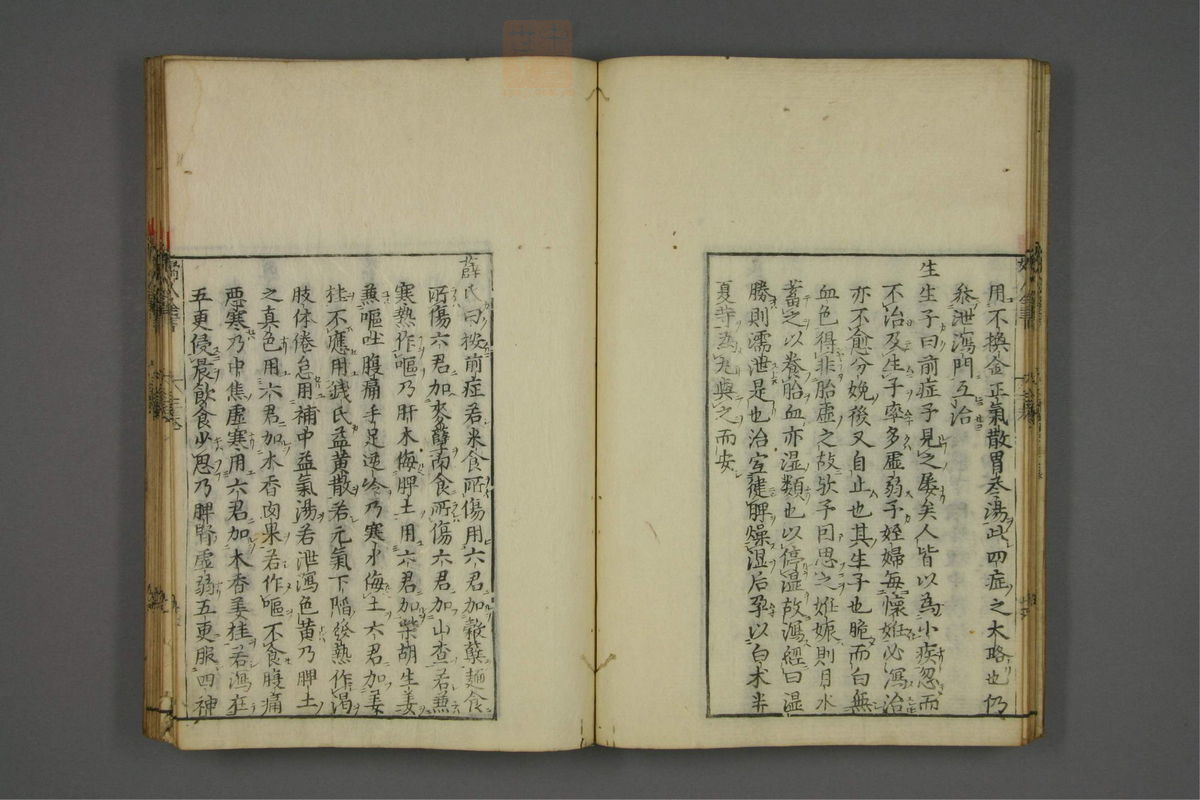 用不換金正氣散胃苓湯此四症之大略也仍
叅泄瀉門互治
生生子曰前症予見之屡矣人皆以為小疾忽而
不治及生子率多虚弱予姪婦毎懷妊必瀉治
亦不愈分娩後又自止也其生子也脆而白無
血色得非胎虚之故欤予因思之妊娠則月水
蓄之以養胎血亦湿類也以停湿故瀉經曰湿
勝則濡泄是也治宜健脾燥湿后孕以白术半
夏等為丸與之而安
薛氏曰按前症若米食所傷用六君加穀蘖麺食
所傷六君加麥蘖肉食所傷六君加山查若兼
寒熱作嘔乃肝木侮脾土用六君加柴胡生姜
兼嘔吐腹痛手足逆冷乃寒水侮土六君加姜
桂不應用錢氏益黄散若元氣下陥發熱作渇
肢体倦怠用補中益氣湯若泄瀉色黄乃脾土
之真色用六君加木香肉果若作嘔不食腹痛
悪寒乃中焦虚寒用六君加木香姜桂若瀉在
五更侵晨飲食少思乃脾腎虚弱五更服四神